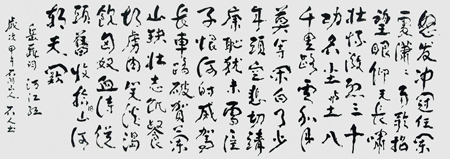 怒发冲冠凭阑
处潇潇雨歇抬
望眼仰天长啸
壮怀激烈三十
功名尘土八
千里路云和月
莫等闲白了少
年头空悲切靖
康耻犹未雪臣
子恨何时灭驾
长车踏破贺兰
山缺壮志饥餐
胡虏肉笑谈渴
饮匈奴血待从
頭舊收拾山河
朝天阙
岳飞词 满江红
岁次甲午 石人书